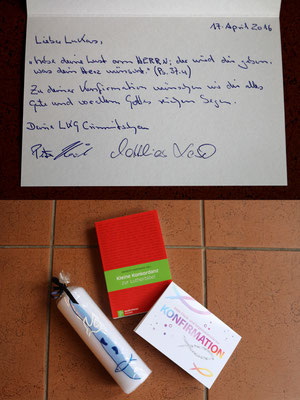 17. April 2016
Lieber Lukas,
"Habe deine Lust am HERRN; der wird dir geben,
was dein Herz wünscht." (Ps. 37,4)
Zu deiner Konfirmation wünschen wir dir alles
Gute und vor allem Gottes reichen Segen.
Deine LKG
Kleine Konkordanz
zur Lutherbibel
KONFIRMATION